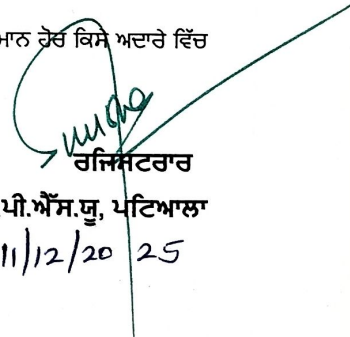 ਮਾਨ ਹੋਰ ਕਿਸੇ ਅਦਾਰੇ ਵਿੱਚ
ਰਜਿਸਟਰਾਰ
ਪੀ.ਐੱਸ.ਯੂ, ਪਟਿਆਲਾ
11/12/2025